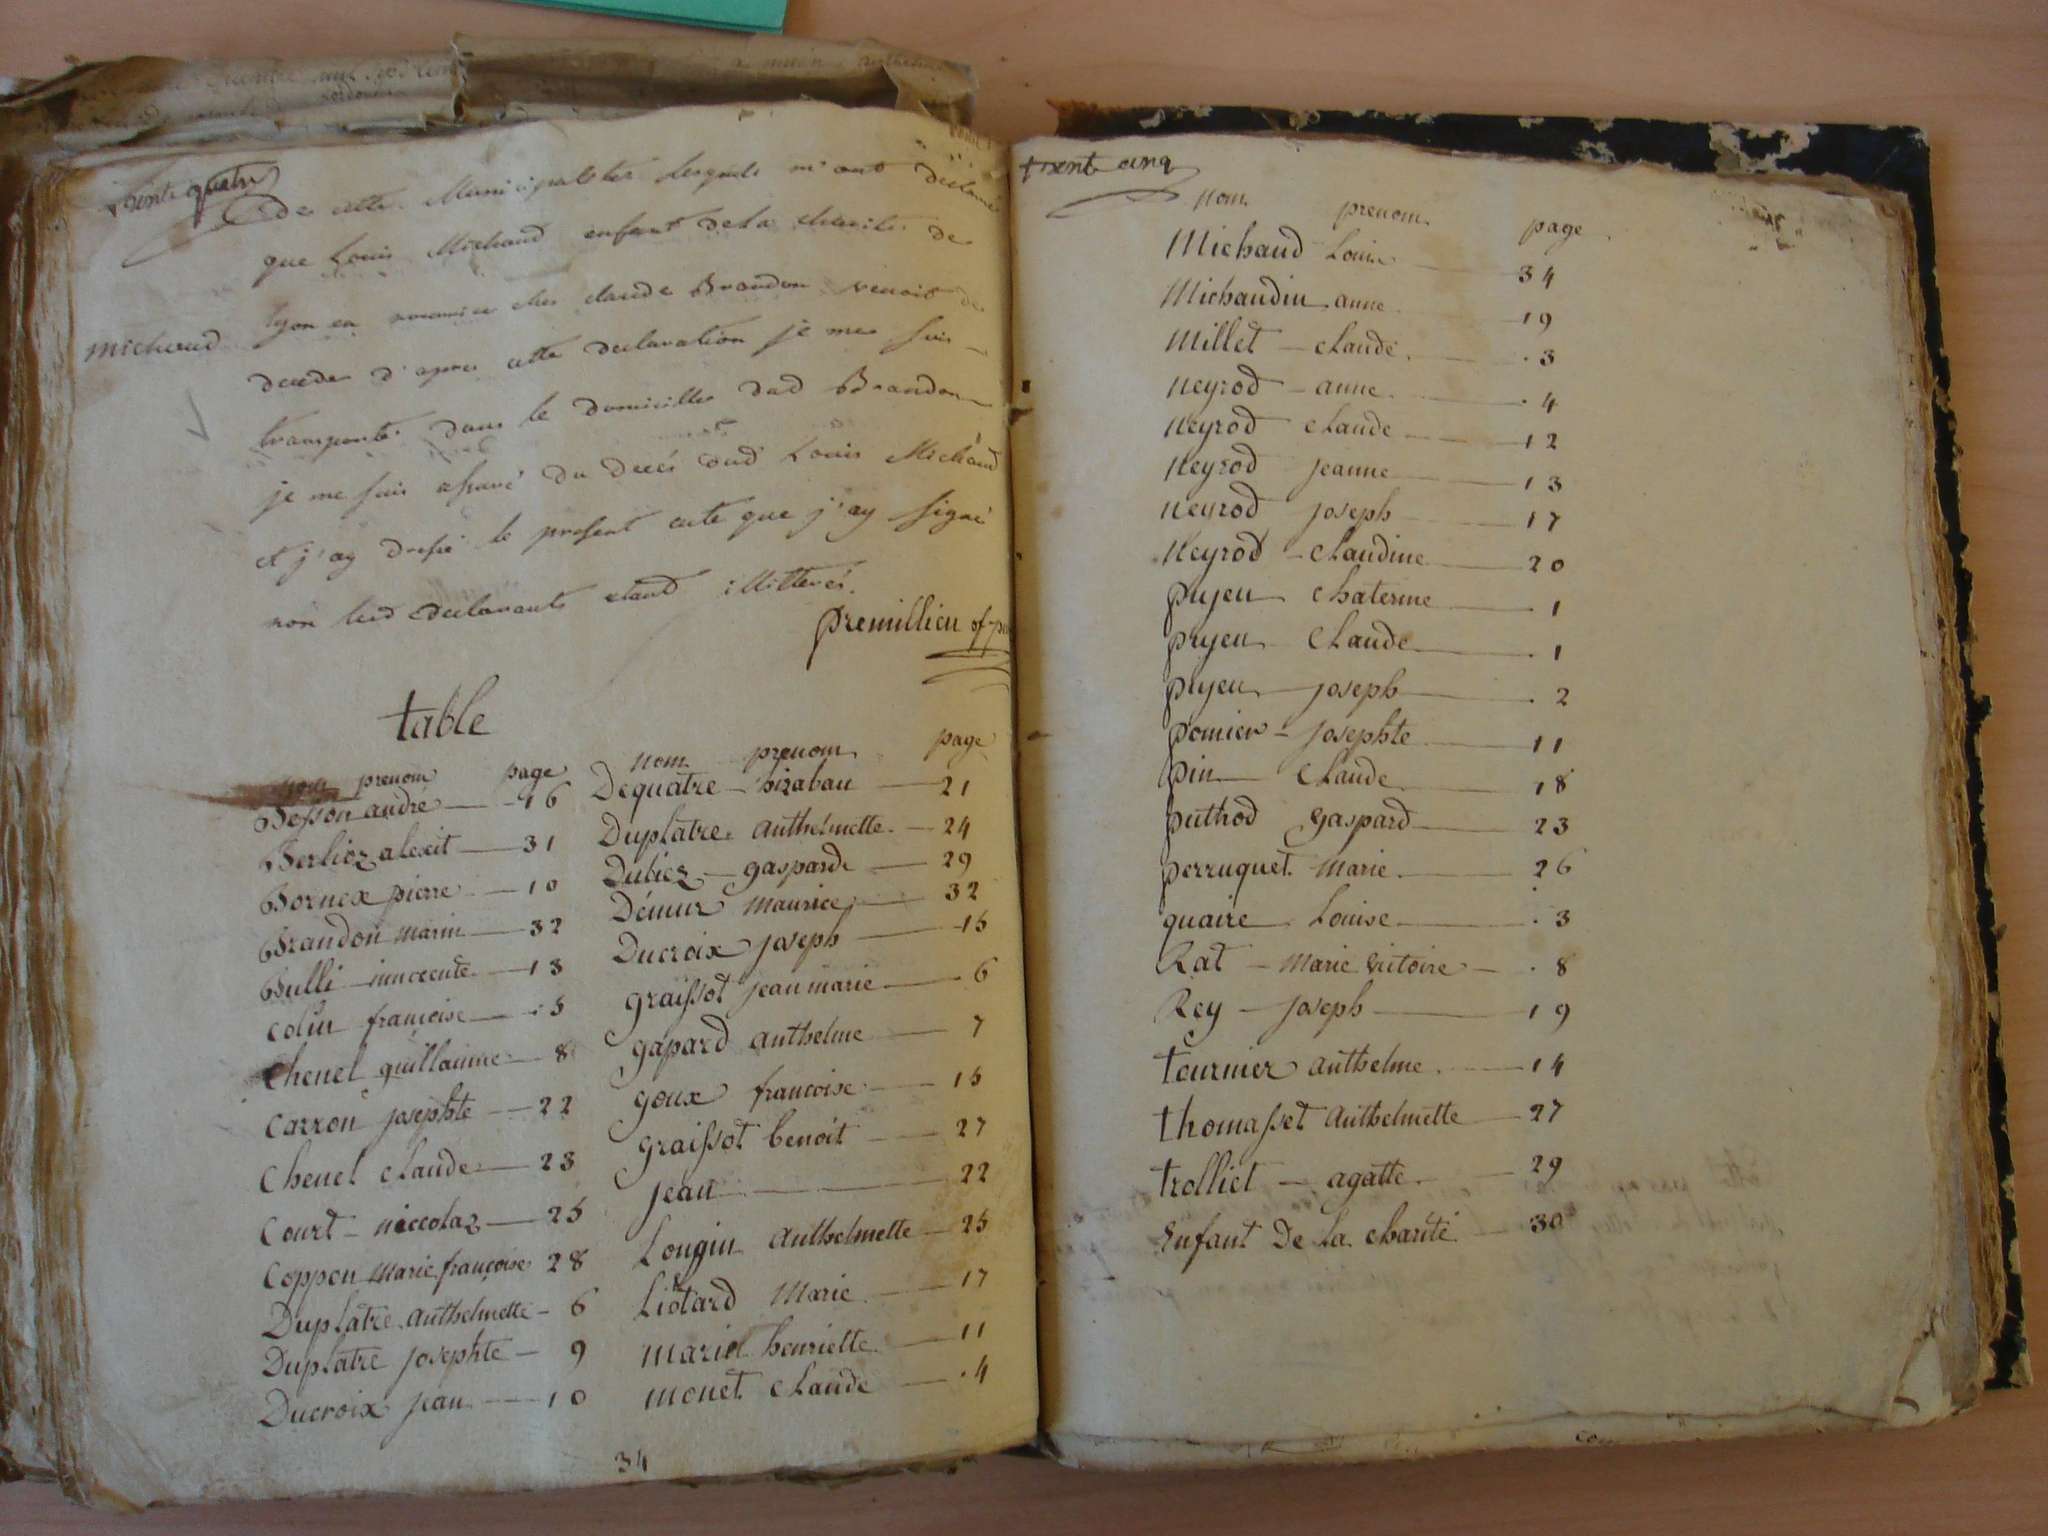 trente quatre
de cette Municipalitée lesquels m'ont déclaré
que Louis Michaud enfant de la charité de
lyon en nourrice chez claude Brandon venoit de
michaud
deceder d'apres cette declaration je me suis
transporté dans le domicille dud Brandon
je me suis assuré du decés dud Louis Michaud
et j'ay dressé le present acte que j'ay signé
non lesd declarants etant illitterés.
premillieu of p
table
nom prenom page
Besson andré 16
Berlioz alexit 31
Bornex pierre 10
Brandon marin 32
Bulli innocente 13
colin francoise 5
Chenel guillaume 8
Carron josephte 22
Chenel claude 23
Court niccolaz 25
Coppon marie françoise 28
Duplatre anthelmette 6
Duplatre josephte 9
Ducroix jean 10
nom prenom page
Dequatre 21
Duplatre anthelmette 24
Dubiez gasparde 29
Démur maurice 32
Ducroix joseph 15
graissot jean marie 6
gapard anthelme 7
goux francoise 15
graissot benoit 27
jean 22
Longin anthelmette 25
Liotard marie 17
mariel henriette 11
monet claude 4
34
trente cinq
nom prenom page
Michaud Louis 34
Michaudin anne 19
Millet claude 3
neyrod anne 4
neyrod claude 12
neyrod jeanne 13
neyrod joseph 17
neyrod claudine 20
pryeu chaterine 1
pryeu Claude 1
pryeu joseph 2
pomier josephte 11
pin Claude 18
puthod gaspard 23
perruquet marie 26
quaire Louise 3
Rat marie vitoire 8
Rey joseph 19
tournier anthelme 14
thomasset anthelmette 27
trolliet agatte 29
Enfant De la charité 30